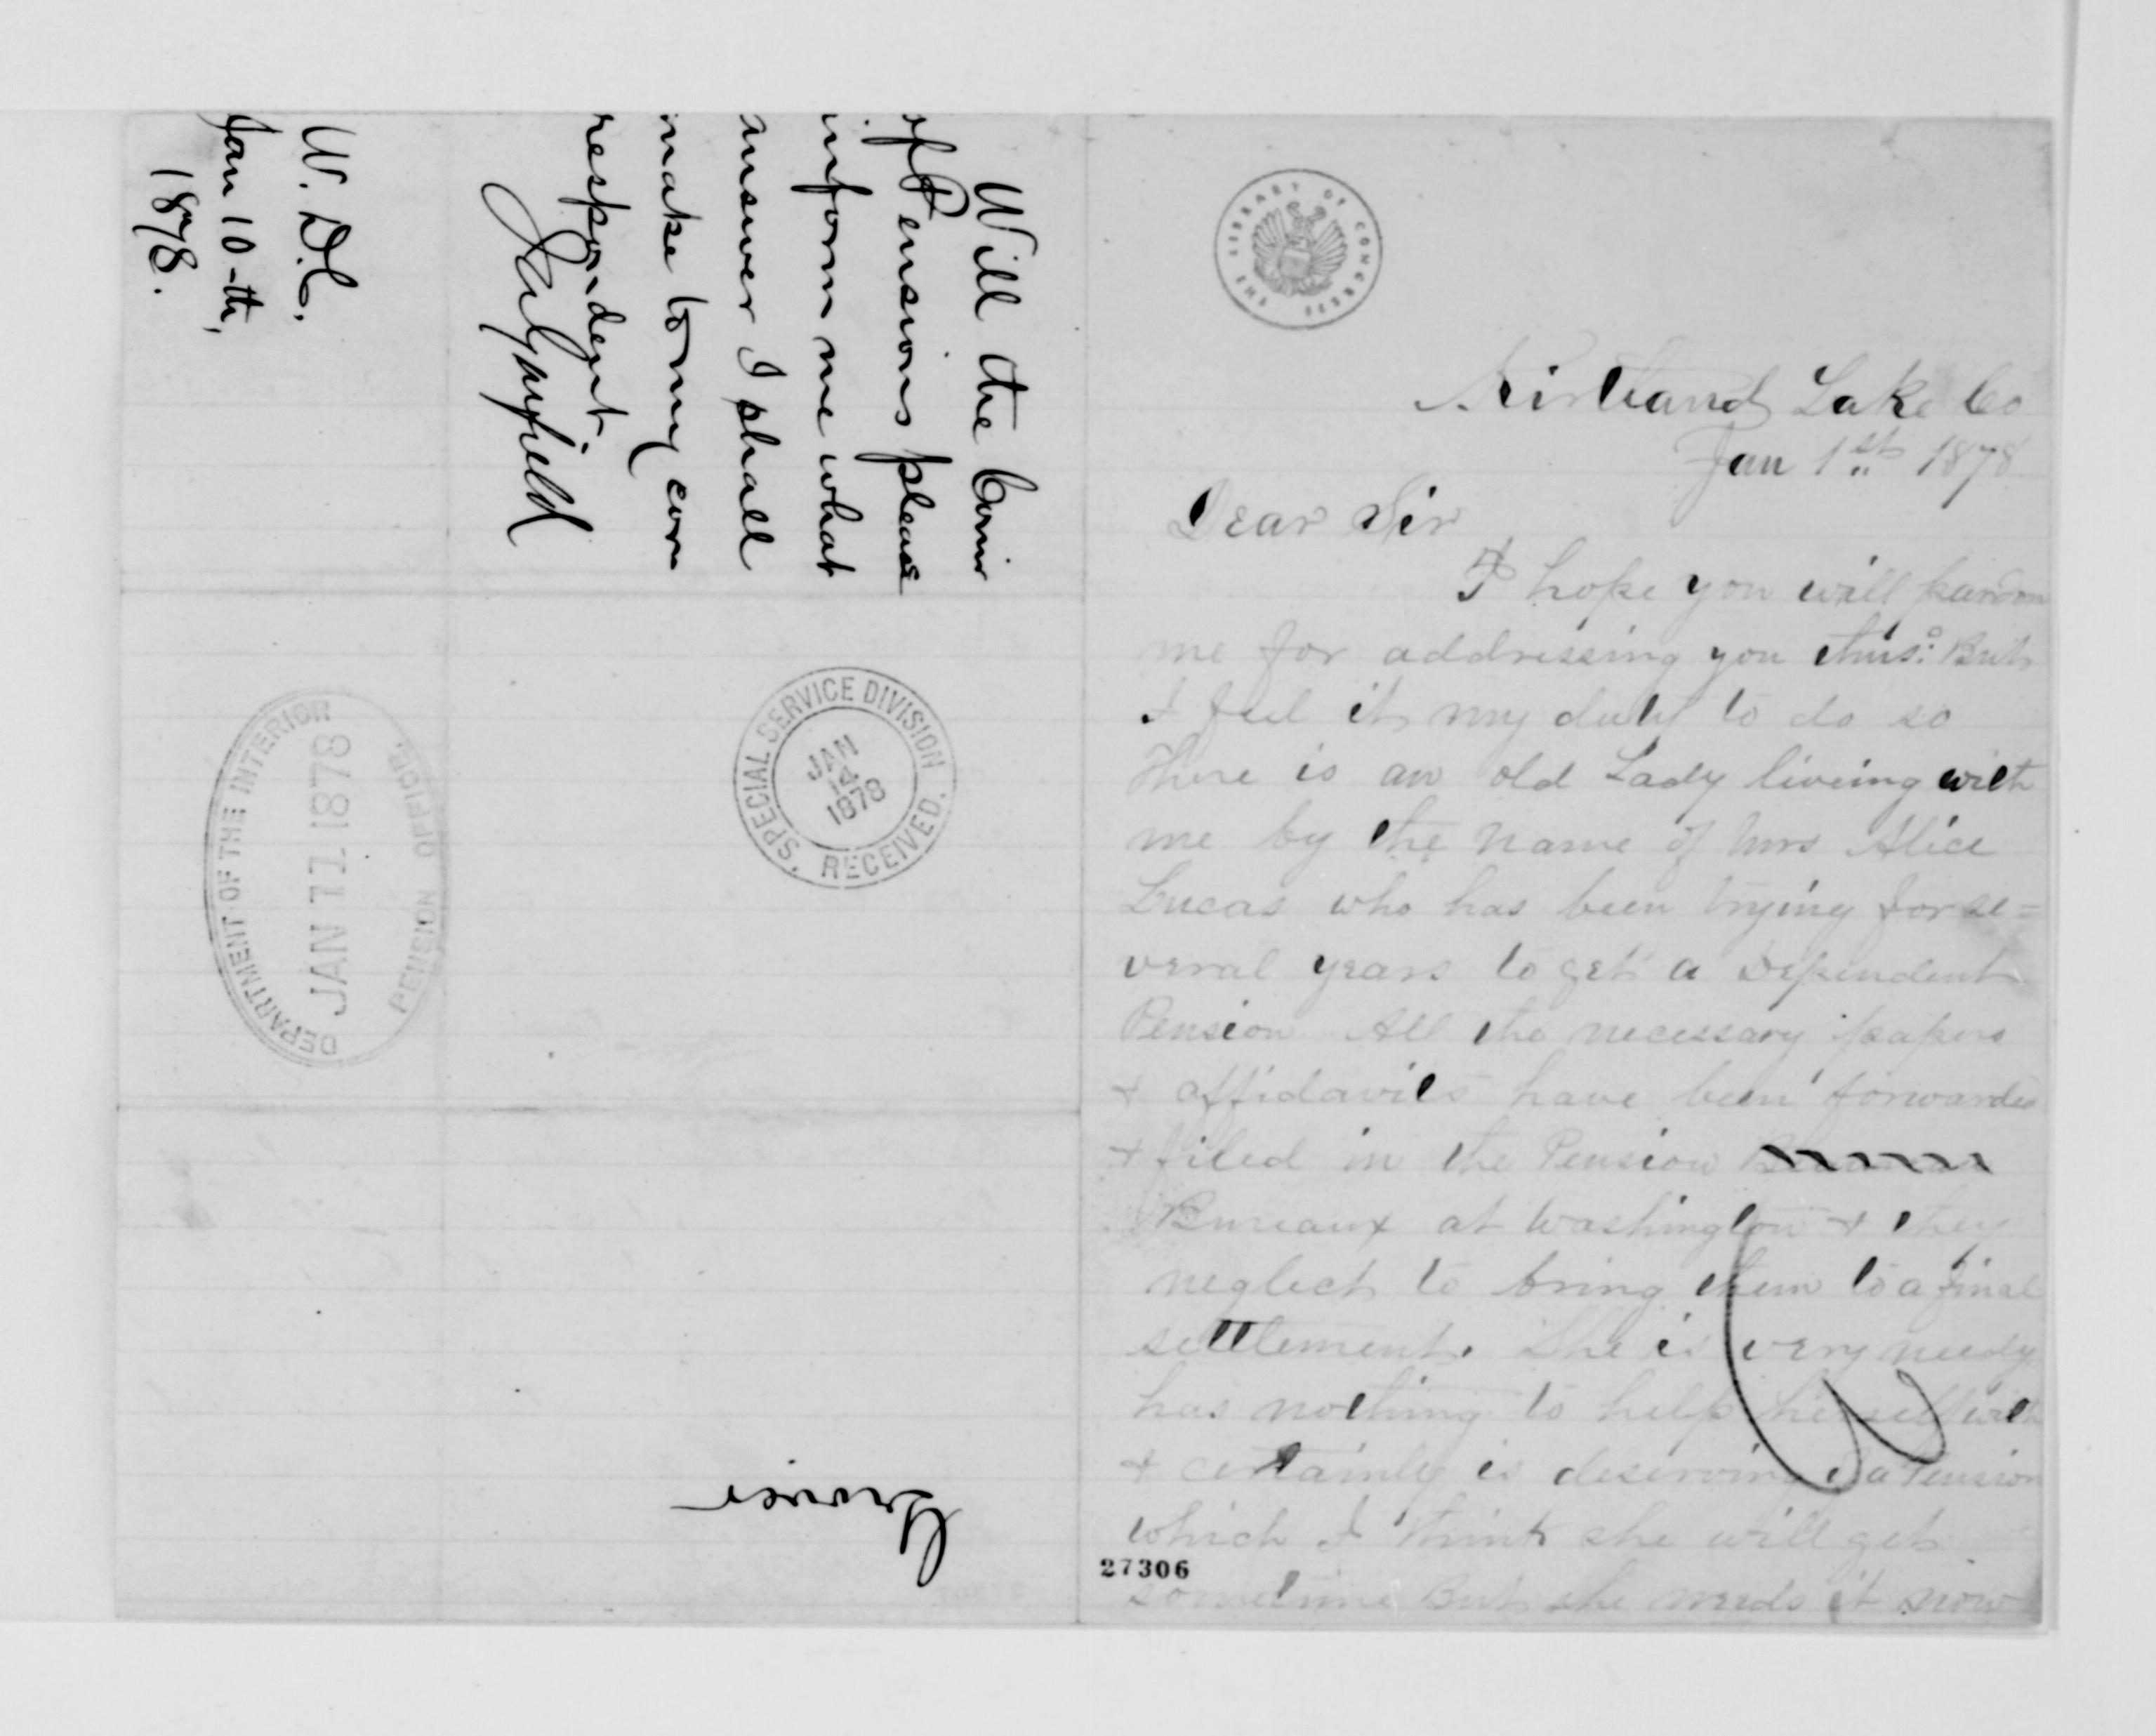 Will the Com
of Pensions please
inform me what
answer I shall
make to my cor
respondent
J A Garfield
W. D.C.
Jan 10-th,
1878.
SPECIAL SERVICE DIVISION
JAN
14
1878
RECEIVED.
DEPARTMENT OF THE INTERIOR
JAN 11 1878
PENSION OFFICE.
THE LIBRARY OF CONGRESS
Kirtland Lake Co
Jan 1st 1878
Dear Sir
I hope you will pardon
me for addressing you thus: But
I feel it my duty to do so
There is an old Lady liveing with
me by the name of Mrs Alice
Lucas who has been trying for se=
veral years to get a Dependent
Pension All the necessary papers
& affidavits have been forwarded
& filed in the Pension
Bureaux at Washington & they
neglect to bring them to a final
settlement. She is very needy
has nothing to help herself with
& certainly is deserving of a Pension
which I think she will get
sometime But she needs it now
27306